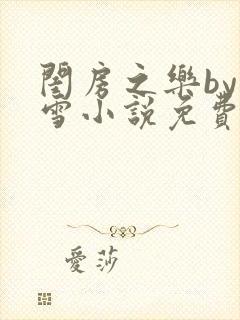 閨房之樂by
雪小說免費
愛莎